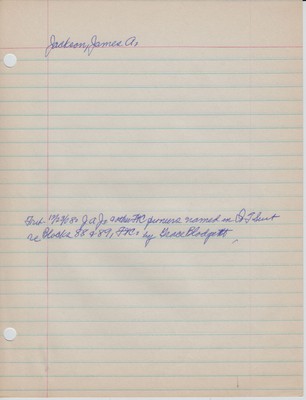 Jackson, James A.
J.A.J. & other FK pioneers named in Q.T. Suit
re Blocks 88 & 89, FK. by Grace Blodgett